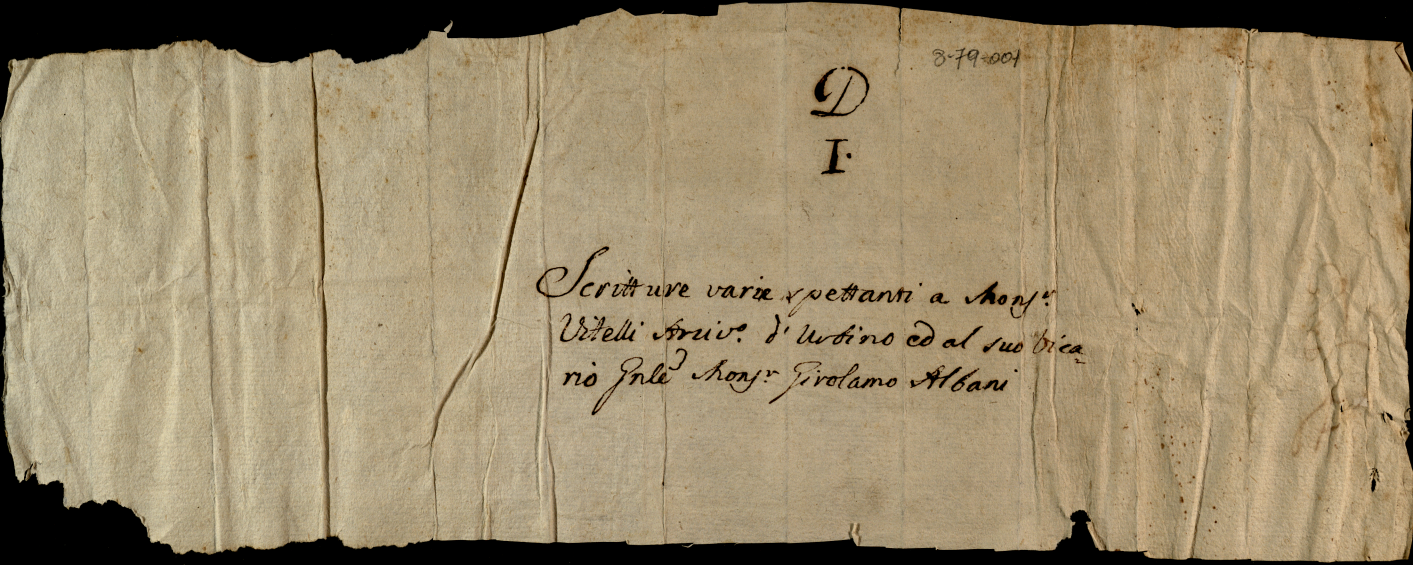 3-79-001
D
I.
Scritture varie spettanti a Monsr.
Vitelli Arcivo. d'Urbino ed al suo Vica=
rio Gnle Monsr Girolamo Albani